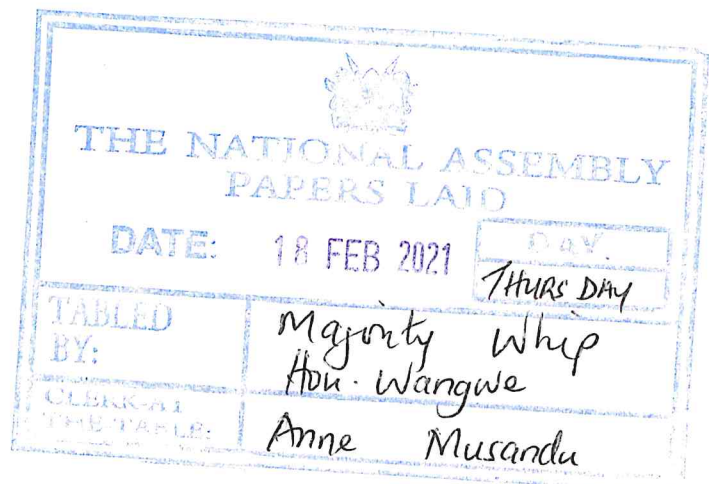 THE NATIONAL ASSEMBLY
PAPERS LAID
DATE: 18 FEB 2021
DAY.
THURSDAY
TABLED
BY:
Majority Whip
Hon. Wangwe
CLERK-AT
THE-TABLE:
Anne Musandu